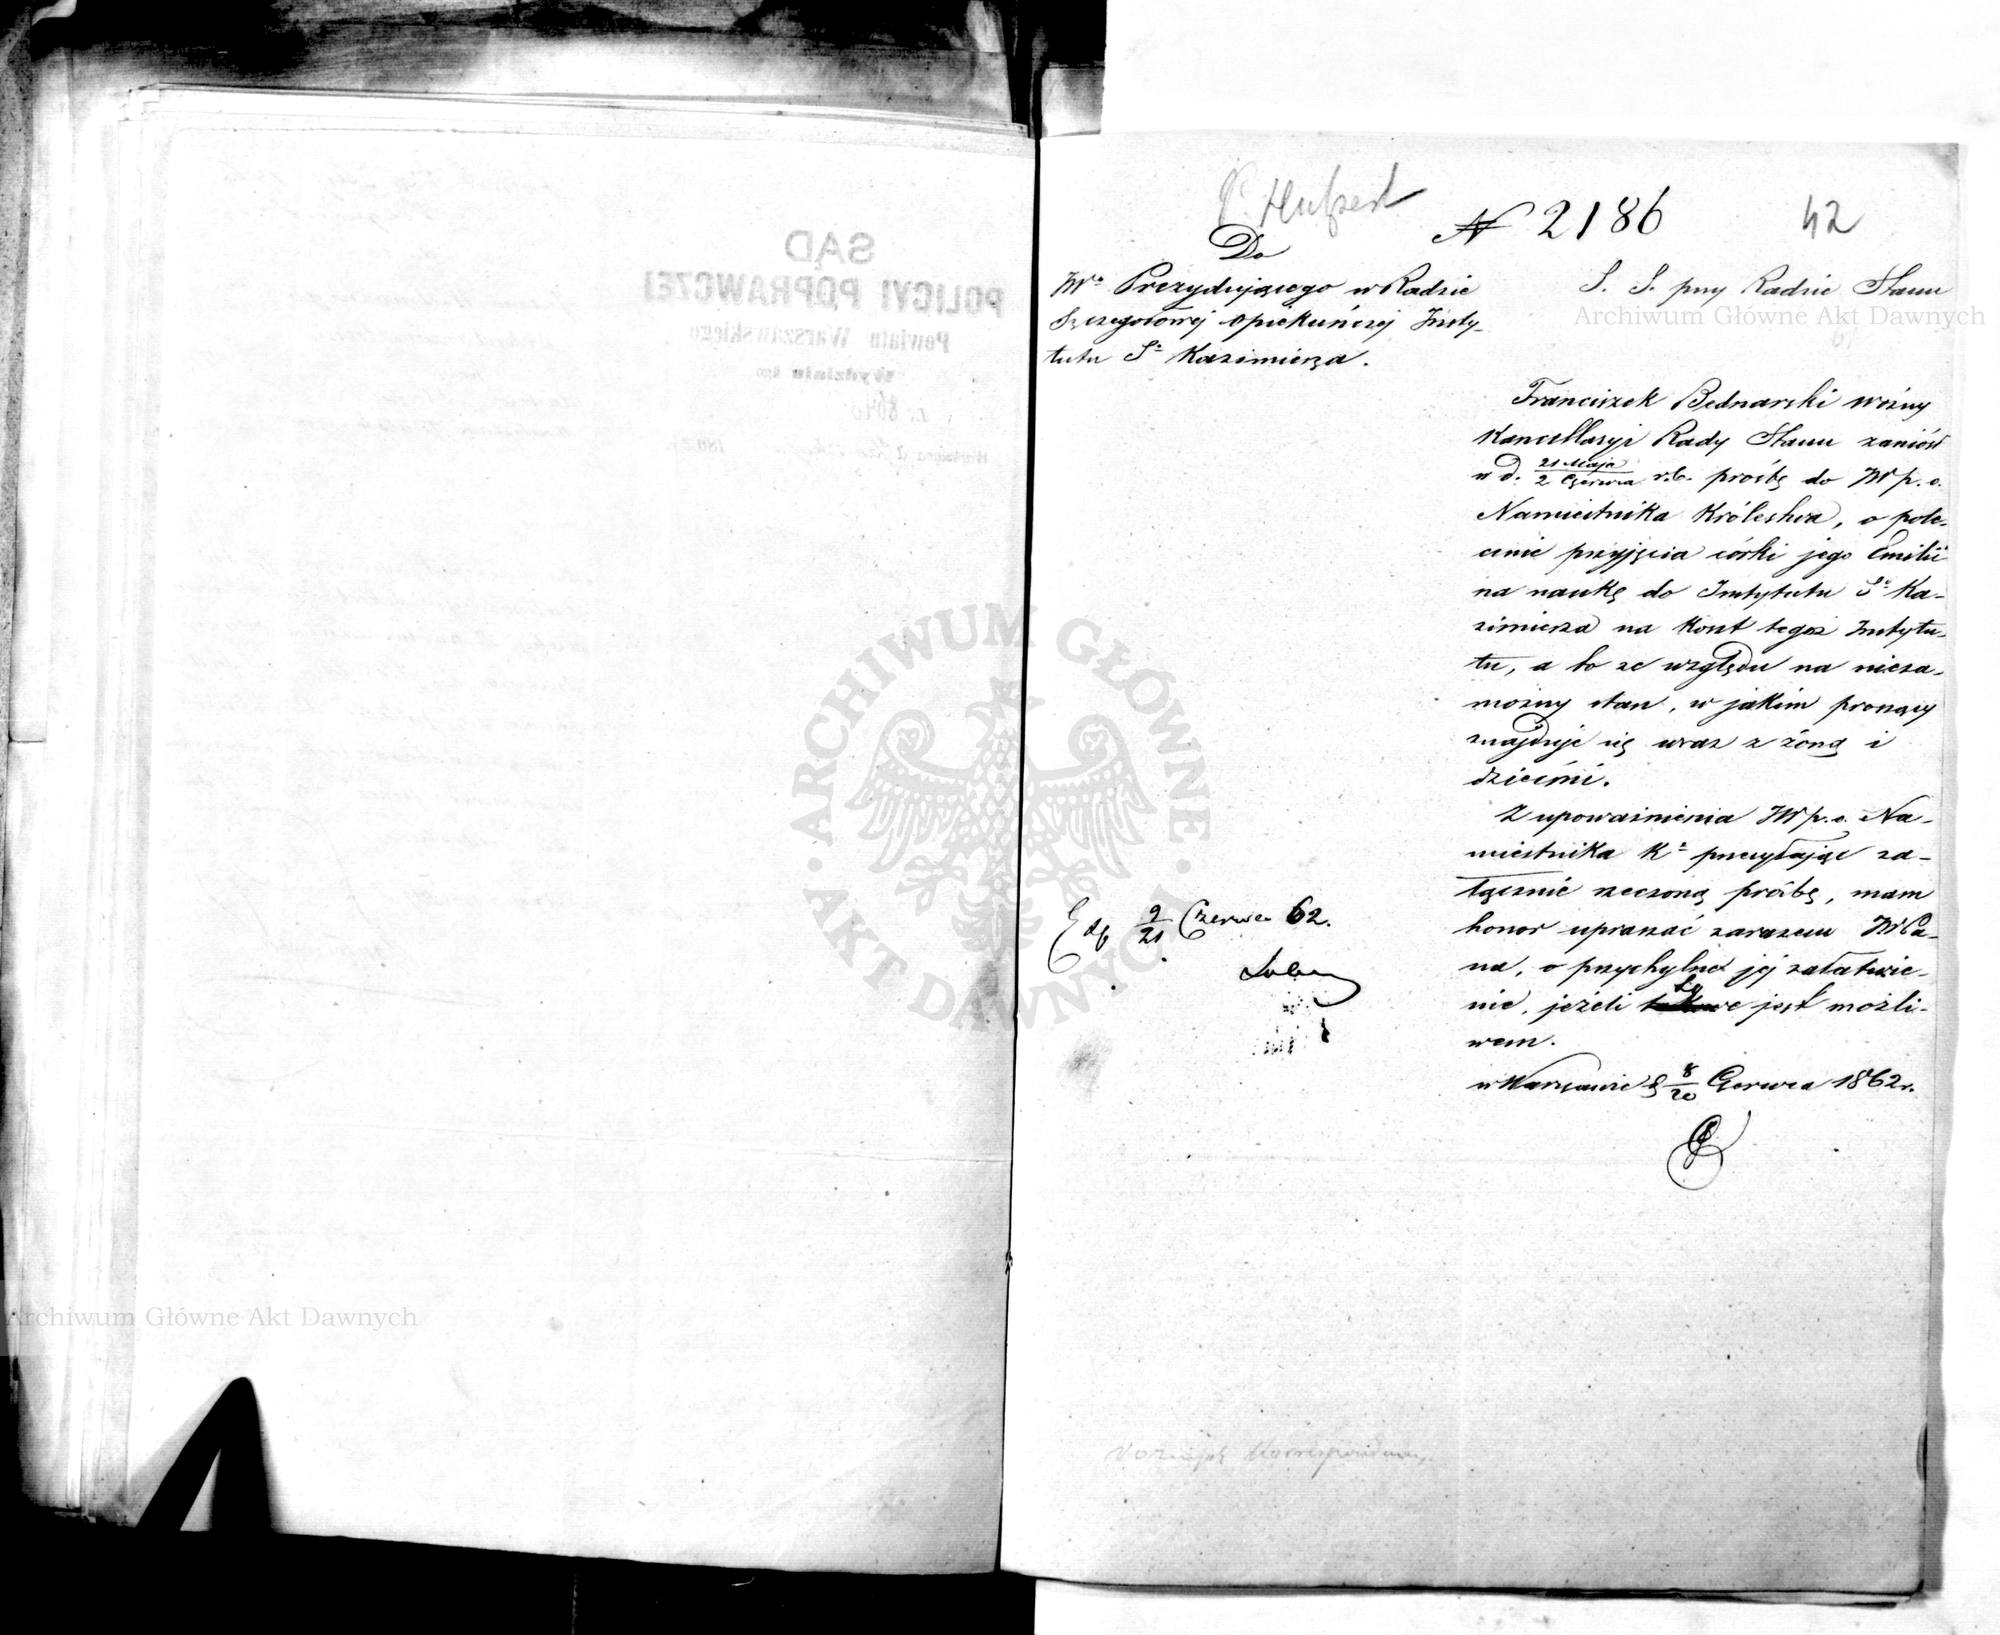 SĄD
POLICYI POPRAWCZEJ
Powiatu Warszawskiego
Wydziału
P. Hubert
№ 2186
42
Do
JWo Prezydującego w Radzie
Szczegółowej Opiekuńczej Insty-
tutu Sgo Kazimierza.
S. S. przy Radzie Stanu
Archiwum Główne Akt Dawnych
Franciszek Bednarski woźny
Kancellaryi Rady Stanu zaniósł
w d. 21 Maja / 2 Czerwca r.b. prośbę do JW p. o.
Namiestnika Królestwa, o pole-
cenie przyjęcia córki jego Emilii
na naukę do Instytutu Sgo Ka-
zimierza na koszt tegoż Instytu-
tu, a to ze względu na nieza-
możny stan, w jakim proszący
znajduje się wraz z żoną i
dziećmi.
Z upoważnienia JW p. o. Na-
miestnika Kr przesyłając za-
łącznie rzeczoną prośbę, mam
honor upraszać zarazem JWPa-
na, o przychylne jej załatwie-
nie, jeżeli to jest możli-
wem.
w Warszawie d 8/20 Czerwca 1862 r.
9/21 Czerwca 62.
ARCHIWUM GŁÓWNE
AKT DAWNYCH
Archiwum Główne Akt Dawnych